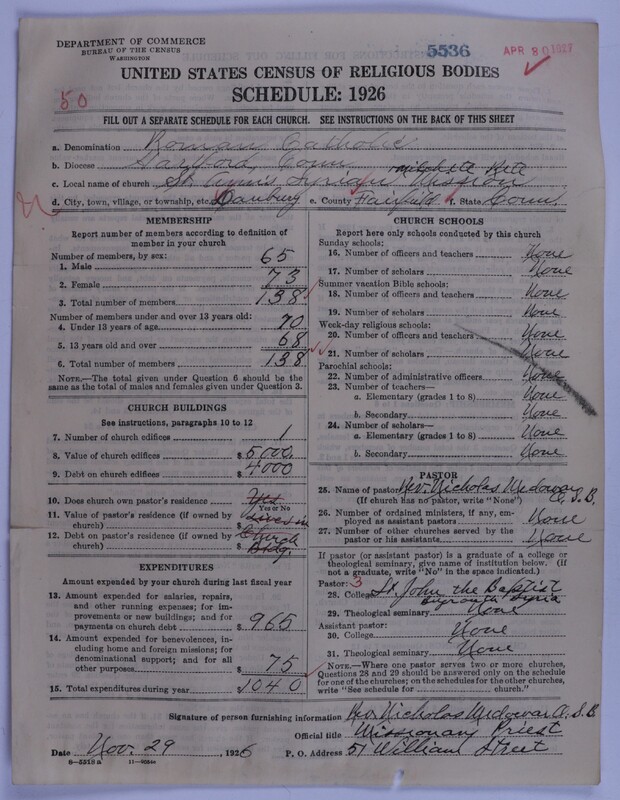 DEPARTMENT OF COMMERCE
BUREAU OF THE CENSUS
WASHINGTON
5536
APR 30 1927
UNITED STATES CENSUS OF RELIGIOUS BODIES
50
SCHEDULE: 1926
FILL OUT A SEPARATE SCHEDULE FOR EACH CHURCH. SEE INSTRUCTIONS ON THE BACK OF THIS SHEET
a. Denomination Roman Catholic
b. Diocese Hartford, Conn
Rite
c. Local name of church St. Syrian Mission
d. City, town, village, or township, etc. Danbury e. County Fairfield f. State Conn
MEMBERSHIP
Report number of members according to definition of member in your church
Number of members, by sex:
1. Male 65
2. Female 73
3. Total number of members 138
Number of members under and over 13 years old:
4. Under 13 years of age 70
5. 13 years old and over 68
6. Total number of members 138
NOTE.—The total given under Question 6 should be the same as the total of males and females given under Question 3.
CHURCH BUILDINGS
See instructions, paragraphs 10 to 12
7. Number of church edifices 1
8. Value of church edifices $ 5000
9. Debt on church edifices $ 4000
10. Does church own pastor's residence Yes
Yes or No
11. Value of pastor's residence (if owned by church) $ Lives in
12. Debt on pastor's residence (if owned by church) $ Church Bldg.
EXPENDITURES
Amount expended by your church during last fiscal year
13. Amount expended for salaries, repairs, and other running expenses; for improvements or new buildings; and for payments on church debt $ 965
14. Amount expended for benevolences, including home and foreign missions; for denominational support; and for all other purposes $ 75
15. Total expenditures during year $ 1040
CHURCH SCHOOLS
Report here only schools conducted by this church
Sunday schools:
16. Number of officers and teachers None
17. Number of scholars None
Summer vacation Bible schools:
18. Number of officers and teachers None
19. Number of scholars None
Week-day religious schools:
20. Number of officers and teachers None
21. Number of scholars None
Parochial schools:
22. Number of administrative officers None
23. Number of teachers—
a. Elementary (grades 1 to 8) None
b. Secondary None
24. Number of scholars—
a. Elementary (grades 1 to 8) None
b. Secondary None
PASTOR
25. Name of pastor Rev. Nicholas Medawar O.S.B.
(If church has no pastor, write "None")
26. Number of ordained ministers, if any, employed as assistant pastors None
27. Number of other churches served by the pastor or his assistants None
If pastor (or assistant pastor) is a graduate of a college or theological seminary, give name of institution below. (If not a graduate, write "No" in the space indicated.)
Pastor: 3
28. College St. John the Baptist
Syria
29. Theological seminary None
Assistant pastor:
30. College None
31. Theological seminary None
NOTE.—Where one pastor serves two or more churches, Questions 28 and 29 should be answered only on the schedule for one of the churches; on the schedules for the other churches, write "See schedule for ........ church."
Signature of person furnishing information Rev. Nicholas Medawar O.S.B
Official title Missionary Priest
Date Nov. 29, 1926 P. O. Address 51 William Street
8—5518 a